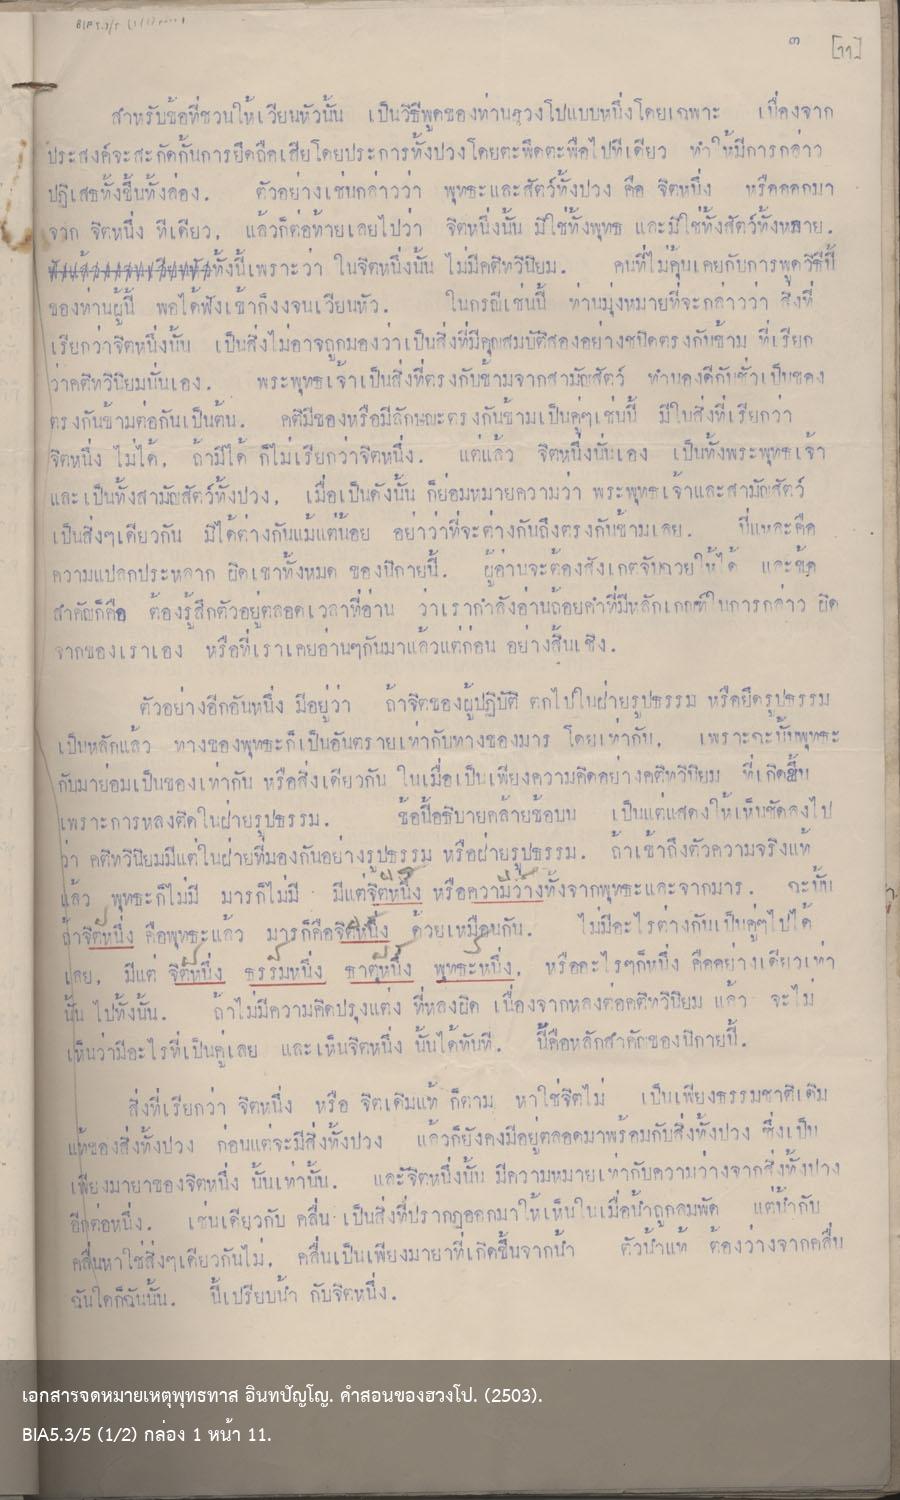 BIA5.3/5 (1/2)
๓ [11]
สำหรับข้อที่ชวนให้เวียนหัวนั้น เป็นวิธีพูดของท่านฮวงโปแบบหนึ่งโดยเฉพาะ เนื่องจาก
ประสงค์จะสะกัดกั้นการยึดถือเสียโดยประการทั้งปวงโดยตะพึดตะพือไปทีเดียว ทำให้มีการกล่าว
ปฏิเสธทั้งขึ้นทั้งล่อง. ตัวอย่างเช่นกล่าวว่า พุทธะและสัตว์ทั้งปวง คือ จิตหนึ่ง หรือออกมา
จาก จิตหนึ่ง ทีเดียว, แล้วก็ต่อท้ายเลยไปว่า จิตหนึ่งนั้น มิใช่ทั้งพุทธ และมิใช่ทั้งสัตว์ทั้งหลาย.
ทั้งนี้เพราะว่า ในจิตหนึ่งนั้น ไม่มีคติทวินิยม. คนที่ไม่คุ้นเคยกับการพูดวิธีนี้
ของท่านผู้นี้ พอได้ฟังเข้าก็งงจนเวียนหัว. ในกรณีเช่นนี้ ท่านมุ่งหมายที่จะกล่าวว่า สิ่งที่
เรียกว่าจิตหนึ่งนั้น เป็นสิ่งไม่อาจถูกมองว่าเป็นสิ่งที่มีคุณสมบัติสองอย่างชนิดตรงกันข้าม ที่เรียก
ว่าคติทวินิยมนั่นเอง. พระพุทธเจ้าเป็นสิ่งที่ตรงกันข้ามจากสามัญสัตว์ ทำนองดีกับชั่วเป็นของ
ตรงกันข้ามต่อกันเป็นต้น. คติมีของหรือมีลักษณะตรงกันข้ามเป็นคู่ๆเช่นนี้ มีในสิ่งที่เรียกว่า
จิตหนึ่ง ไม่ได้, ถ้ามีได้ ก็ไม่เรียกว่าจิตหนึ่ง. แต่แล้ว จิตหนึ่งนั่นเอง เป็นทั้งพระพุทธเจ้า
และเป็นทั้งสามัญสัตว์ทั้งปวง, เมื่อเป็นดังนั้น ก็ย่อมหมายความว่า พระพุทธเจ้าและสามัญสัตว์
เป็นสิ่งๆเดียวกัน มิได้ต่างกันแม้แต่น้อย อย่าว่าที่จะต่างกันถึงตรงกันข้ามเลย. นี่แหละคือ
ความแปลกประหลาด ผิดเขาทั้งหมด ของนิกายนี้. ผู้อ่านจะต้องสังเกตจับฉวยให้ได้ และข้อ
สำคัญก็คือ ต้องรู้สึกตัวอยู่ตลอดเวลาที่อ่าน ว่าเรากำลังอ่านถ้อยคำที่มีหลักเกณฑ์ในการกล่าว ผิด
จากของเราเอง หรือที่เราเคยอ่านๆกันมาแล้วแต่ก่อน อย่างสิ้นเชิง.
ตัวอย่างอีกอันหนึ่ง มีอยู่ว่า ถ้าจิตของผู้ปฏิบัติ ตกไปในฝ่ายรูปธรรม หรือยึดรูปธรรม
เป็นหลักแล้ว ทางของพุทธะก็เป็นอันตรายเท่ากับทางของมาร โดยเท่ากัน, เพราะฉะนั้นพุทธะ
กับมาย่อมเป็นของเท่ากัน หรือสิ่งเดียวกัน ในเมื่อเป็นเพียงความคิดอย่างคติทวินิยม ที่เกิดขึ้น
เพราะการหลงติดในฝ่ายรูปธรรม. ข้อนี้อธิบายคล้ายข้อบน เป็นแต่แสดงให้เห็นชัดลงไป
ว่า คติทวินิยมมีแต่ในฝ่ายที่มองกันอย่างรูปธรรม หรือฝ่ายรูปธรรม. ถ้าเข้าถึงตัวความจริงแท้
แล้ว พุทธะก็ไม่มี มารก็ไม่มี มีแต่จิตหนึ่ง หรือความว่างทั้งจากพุทธะและจากมาร. ฉะนั้น
ถ้าจิตหนึ่ง คือพุทธะแล้ว มารก็คือจิตหนึ่ง ด้วยเหมือนกัน. ไม่มีอะไรต่างกันเป็นคู่ๆไปได้
เลย, มีแต่ จิตหนึ่ง ธรรมหนึ่ง ธาตุหนึ่ง พุทธะหนึ่ง, หรืออะไรๆก็หนึ่ง คืออย่างเดียวเท่า
นั้น ไปทั้งนั้น. ถ้าไม่มีความคิดปรุงแต่ง ที่หลงผิด เนื่องจากหลงต่อคติทวินิยม แล้ว จะไม่
เห็นว่ามีอะไรที่เป็นคู่เลย และเห็นจิตหนึ่ง นั้นได้ทันที. นี้คือหลักสำคัญของนิกายนี้.
สิ่งที่เรียกว่า จิตหนึ่ง หรือ จิตเดิมแท้ ก็ตาม หาใช่จิตไม่ เป็นเพียงธรรมชาติเดิม
แท้ของสิ่งทั้งปวง ก่อนแต่จะมีสิ่งทั้งปวง แล้วก็ยังคงมีอยู่ตลอดมาพร้อมกับสิ่งทั้งปวง ซึ่งเป็น
เพียงมายาของจิตหนึ่ง นั้นเท่านั้น. และจิตหนึ่งนั้น มีความหมายเท่ากับความว่างจากสิ่งทั้งปวง
อีกต่อหนึ่ง. เช่นเดียวกับ คลื่น เป็นสิ่งที่ปรากฏออกมาให้เห็นในเมื่อน้ำถูกลมพัด แต่น้ำกับ
คลื่นหาใช่สิ่งๆเดียวกันไม่, คลื่นเป็นเพียงมายาที่เกิดขึ้นจากน้ำ ตัวน้ำแท้ ต้องว่างจากคลื่น
ฉันใดก็ฉันนั้น. นี้เปรียบน้ำ กับจิตหนึ่ง.
เอกสารจดหมายเหตุพุทธทาส อินทปัญโญ. คำสอนของฮวงโป. (2503).
BIA5.3/5 (1/2) กล่อง 1 หน้า 11.